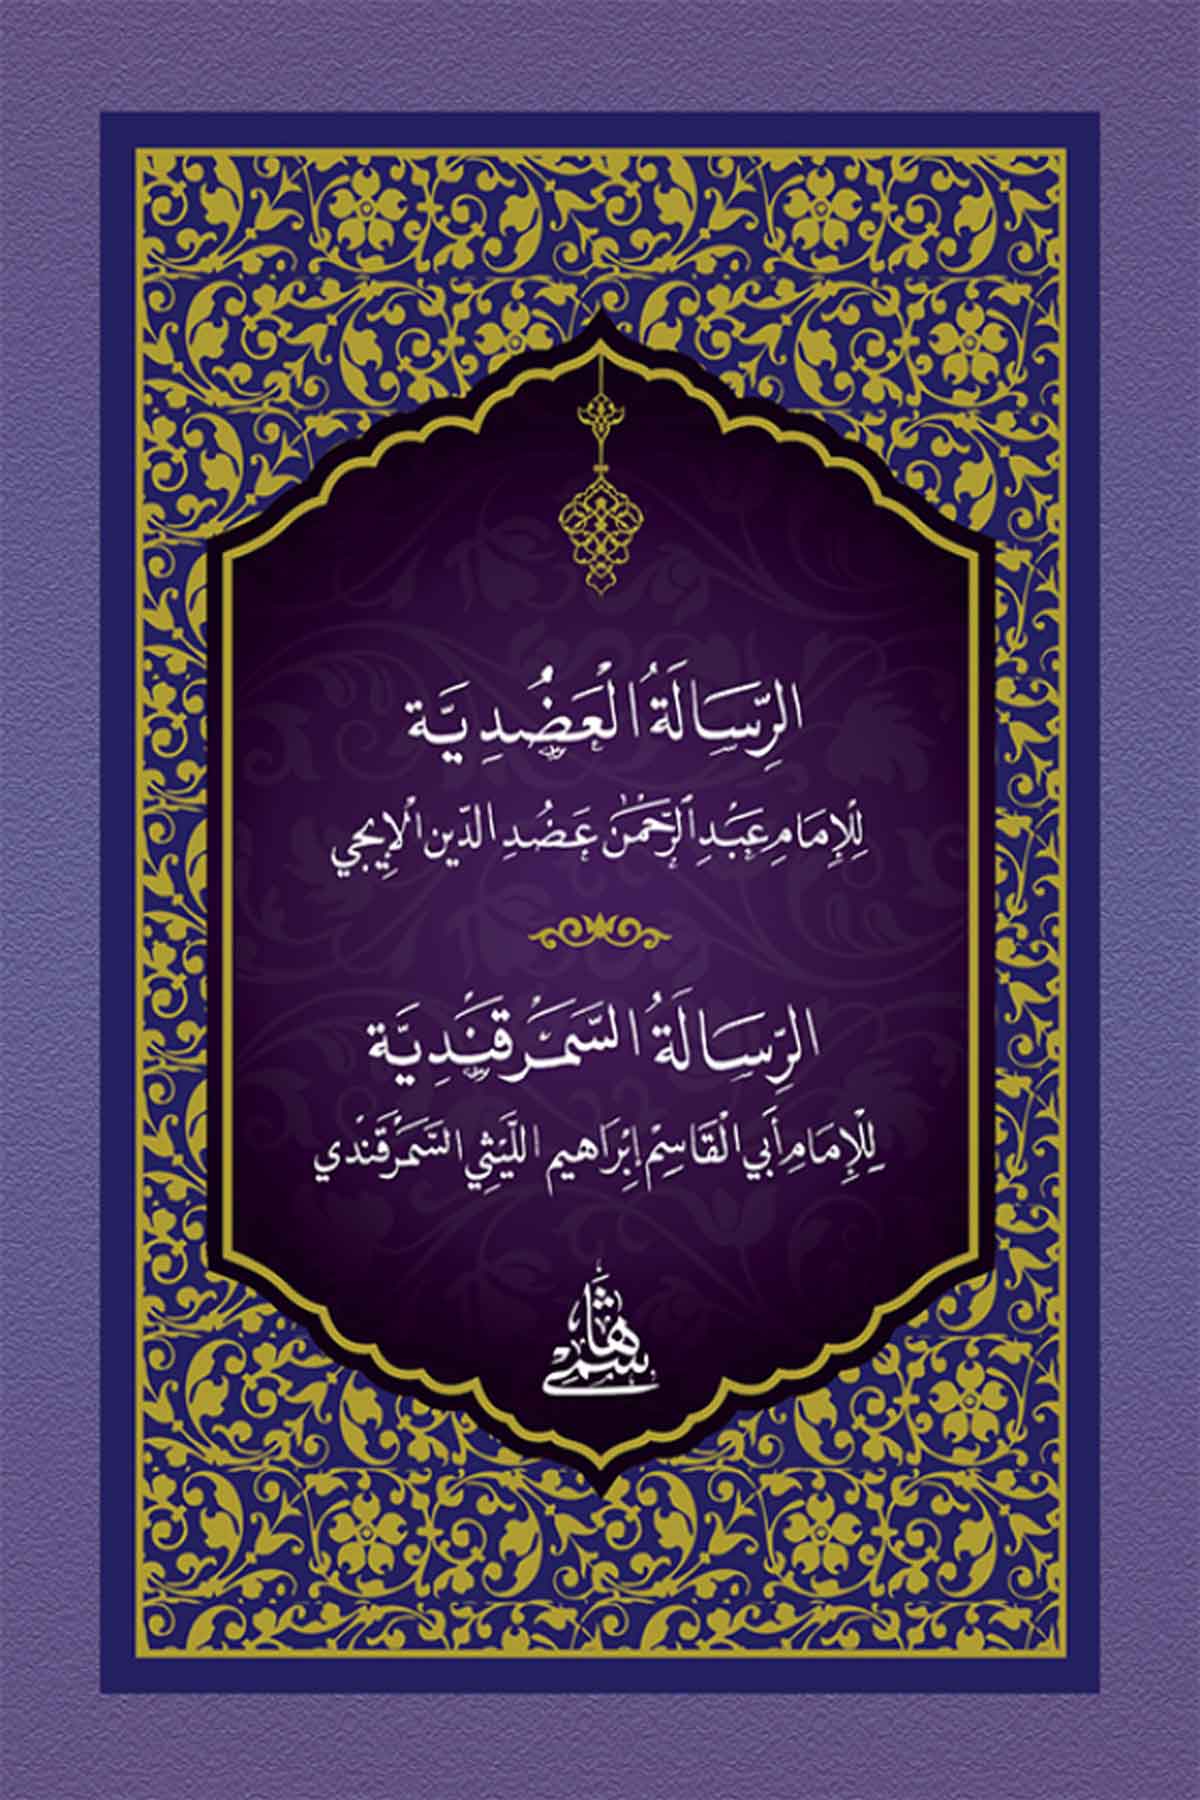 الرِّسَالَةُ الْعَضُدِيَّة
لِلْإِمَامِ عَبْدِ الرَّحْمٰنِ عَضُدِ الدّين الْإِيجي
الرِّسَالَةُ السَّمَرْقَنْدِيَّة
لِلْإِمَامِ أَبي الْقَاسِمْ إِبْرَاهيم اللَّيْثِي السَّمَرْقَنْدي
هاشمي